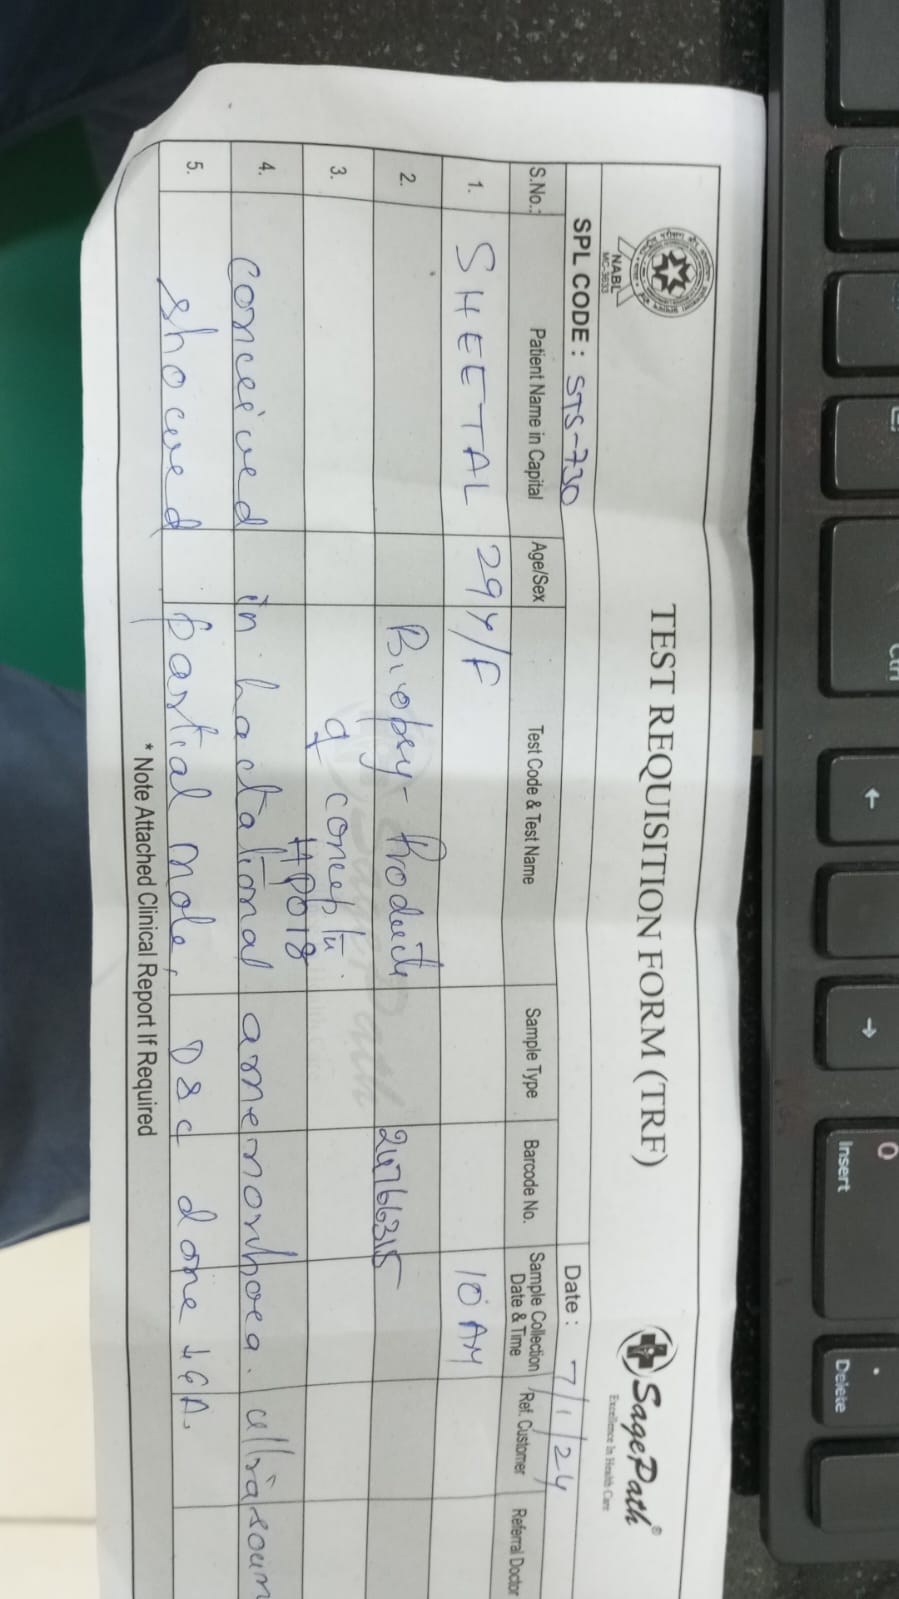 NABL
MC-3633
TEST REQUISITION FORM (TRF)
SagePath®
Excellence In Health Care
SPL CODE : STS-730
Date : 7/1/24
S.No.: Patient Name in Capital Age/Sex Test Code & Test Name Sample Type Barcode No. Sample Collection Date & Time Ref. Customer Referral Doctor
1. SHEETAL 29Y/F 10 AM
2. Biopsy - Products 24766315
3. of concepti
HP018
4. conceived in lactational amenorrhoea. ultrasoun
5. showed partial mole, D&C done
* Note Attached Clinical Report If Required
Ctrl
←
→
0
Insert
.
Delete